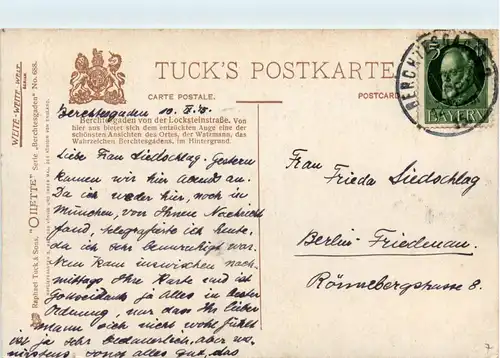 TUCK'S POSTKARTE
CARTE POSTALE.
POSTCARD
BERCHTESGADEN
5
BAYERN
WEITE-WEITE-WELT
Raphael Tuck & Sons. "OILETTE" Serie „Berchtesgaden" No. 688.
Berchtesgaden von der Locksteinstraße. Von
hier aus bietet sich dem entzückten Auge eine der
schönsten Ansichten des Ortes, der Watzmann, das
Wahrzeichen Berchtesgadens, im Hintergrund.
Berchtesgaden 10.
Liebe Frau Liedschlag. Gestern
kamen wir hier abends an.
Da ich weder hier, noch in
München, von Ihnen Nachricht
fand, telegrafierte ich heute,
da ich sehr beunruhigt war.
Nun kam inzwischen nach-
mittags Ihre Karte und ist
Gottseidank ja Alles in bester
Ordnung, nur dass Ihr lieber
mann sich nicht wohl fühlt
ist ja sehr bedauerlich, aber wo-
sonst alles gut, das
Frau
Frieda Liedschlag
Berlin-Friedenau.
Rönnebergstrasse 8.
7